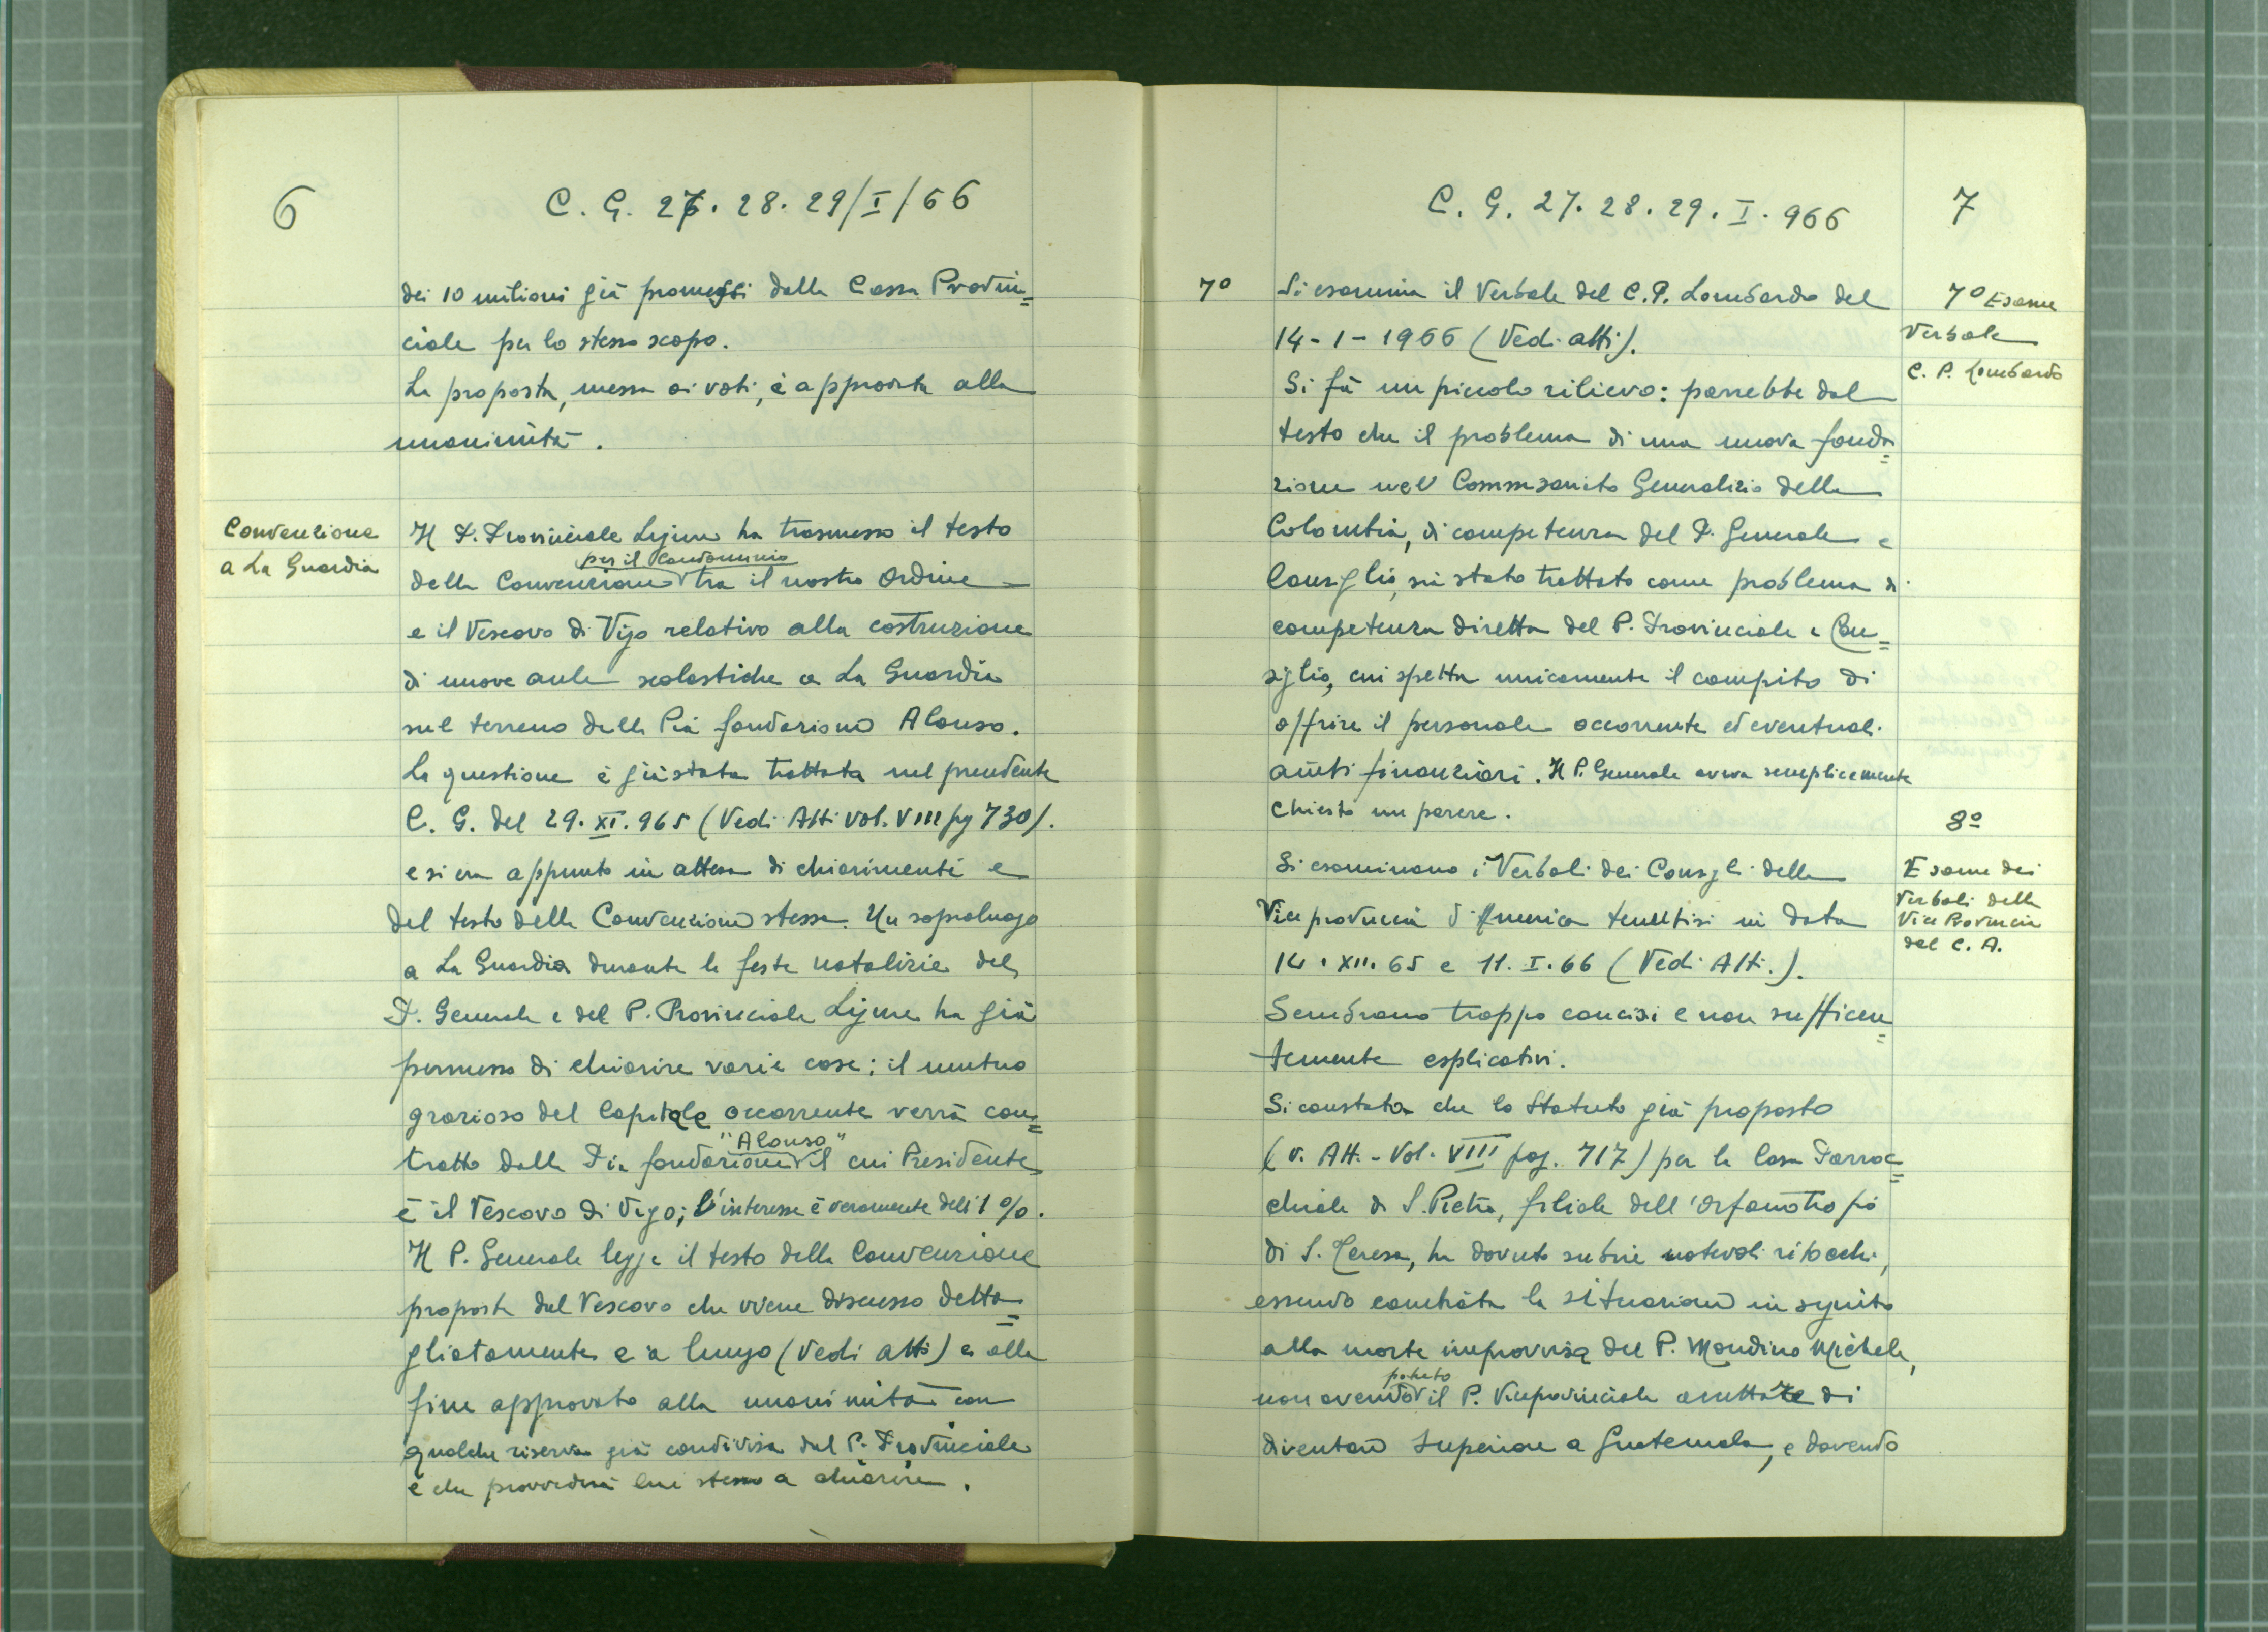 6
C. G. 27. 28. 29/I/66
dei 10 milioni già promessi dalla Cassa Provin=
ciale per lo stesso scopo.
La proposta, messa ai voti, è approvata alla
unanimità.
Convenzione
a La Guardia
Il P. Provinciale Ligure ha trasmesso il testo
per il Condominio
della Convenzione tra il nostro Ordine
e il Vescovo di Vigo relativo alla costruzione
di nuove aule scolastiche a La Guardia
sul terreno della Pia fondazione Alonso.
La questione è già stata trattata nel precedente
C. G. del 29. XI. 965 (Vedi Atti vol. VIII pg 730).
e si era appunto in attesa di chiarimenti e
del testo della Convenzione stessa. Un sopraluogo
a La Guardia durante le feste natalizie del
P. Generale e del P. Provinciale Ligure ha già
permesso di chiarire varie cose: il mutuo
grazioso del Capitale occorrente verrà con=
"Alonso"
tratto dalla Pia fondazione il cui Presidente
è il Vescovo di Vigo; l'interesse è veramente dell'1%.
Il P. Generale legge il testo della Convenzione
proposta dal Vescovo che viene discusso detta=
gliatamente e a lungo (Vedi atti) e alla
fine approvato alla unanimità con
qualche riserva già condivisa dal P. Provinciale
e che provvederà lui stesso a chiarire.
C. G. 27. 28. 29. I. 966
7
7º
Si esamina il Verbale del C. P. Lombardo del
14-1-1966 (Vedi atti).
7º Esame
Verbale
C. P. Lombardo
Si fà un piccolo rilievo: parrebbe dal
testo che il problema di una nuova fonda=
zione nel Commissariato Generalizio della
Colombia, di competenza del P. Generale e
Consiglio, sia stato trattato come problema di
competenza diretta del P. Provinciale e Con=
siglio, cui spetta unicamente il compito di
offrire il personale occorrente ed eventuali
aiuti finanziari. Il P. Generale aveva semplicemente
chiesto un parere.
8º
Esame dei
Verbali della
Vice Provincia
del C. A.
Si esaminano i Verbali dei Consigli della
Vice provincia d'America tenutisi in data
14. XII. 65 e 11. I. 66 (Vedi Atti.).
Sembrano troppo concisi e non sufficien=
temente esplicativi.
Si constata che lo Statuto già proposto
(v. Att. - Vol. VIII pag. 717) per la Casa Parroc=
chiale di S. Pietro, filiale dell'Orfanotrofio
di S. Teresa, ha dovuto subire notevoli ritocchi,
essendo cambiata la situazione in seguito
alla morte improvvisa del P. Mondino Michele,
potuto
non avendo il P. Viceprovinciale accettare di
diventare Superiore a Guatemala, e dovendo